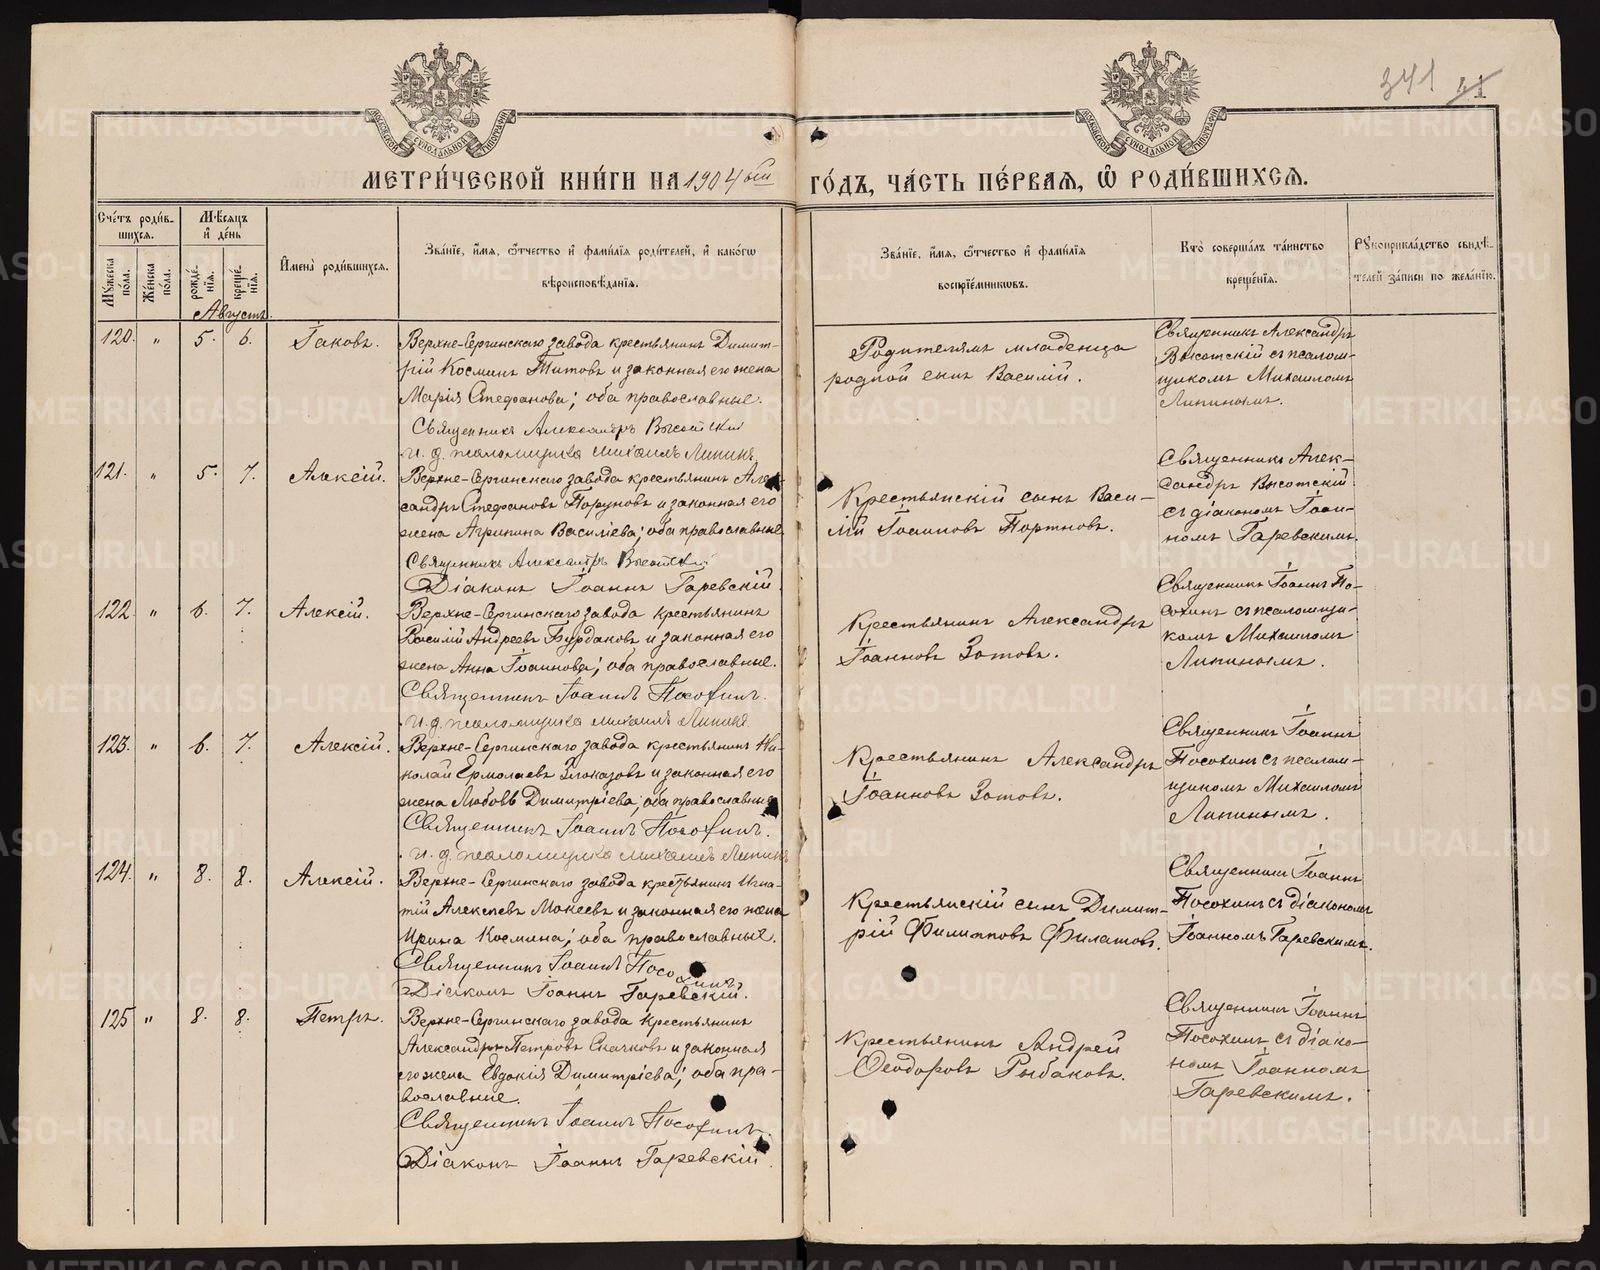 341 41
МОСКОВСКОЙ СУНОДАЛЬНОЙ ТИПОГРАФІИ
МОСКОВСКОЙ СУНОДАЛЬНОЙ ТИПОГРАФІИ
МЕТРИ́ЧЕСКОЙ КНИ́ГИ НА 1904ый ГО́ДЪ, ЧА́СТЬ ПЕ́РВАЯ, Ѡ РОДИ́ВШИХСЯ.
Сче́тъ роди́в-
шихся.
Му́жеска по́ла.
Же́нска по́ла.
Мѣ́сяцъ
и҆ де́нь
рожде́-
нїя.
креще́-
нїя.
И҆мена̀ роди́вшихся.
Зва́нїе, и҆́мя, ѻ҆́тчество и҆ фами́лїя роди́телей, и҆ како́гѡ
вѣроисповѣ́данїя.
Зва́нїе, и҆́мя, ѻ҆́тчество и҆ фами́лїя
воспрїе́мниковъ.
Кто̀ соверша́лъ та́инство
креще́нїя.
Рꙋкоприкла́дство свидѣ́-
телей за́писи по жела́нїю.
Августъ.
120. " 5. 6. Іаковъ.
Верхне-Сергинскаго завода крестьянинъ Димит-
рій Косминъ Титовъ и законная его жена
Марія Стефанова; оба православные.
Священникъ Александръ Высотскій
и. д. псаломщика Михаилъ Липинъ
Родителямъ младенца
родной сынъ Василій.
Священникъ Александръ
Высотскій съ псалом-
щикомъ Михаиломъ
Липинымъ.
121. " 5. 7. Алексій.
Верхне-Сергинскаго завода крестьянинъ Алек-
сандръ Стефановъ Поруновъ и законная его
жена Агрипина Василіева; оба православные.
Священникъ Александръ Высотскій
Діаконъ Іоаннъ Гаревскій.
Крестьянскій сынъ Васи-
лій Іоанновъ Портновъ.
Священникъ Алек-
сандръ Высотскій
съ діакономъ Іоан-
номъ Гаревскимъ.
122. " 6. 7. Алексій.
Верхне-Сергинскаго завода крестьянинъ
Василій Андреевъ Бурдаковъ и законная его
жена Анна Іоаннова; оба православные.
Священникъ Іоаннъ Посохинъ.
и. д. псаломщика Михаилъ Липинъ
Крестьянинъ Александръ
Іоанновъ Зотовъ.
Священникъ Іоаннъ По-
сохинъ съ псаломщи-
комъ Михаиломъ
Липинымъ.
123. " 6. 7. Алексій.
Верхне-Сергинскаго завода крестьянинъ Ни-
колай Ермолаевъ Злоказовъ и законная его
жена Любовь Димитріева; оба православные
Священникъ Іоаннъ Посохинъ.
и. д. псаломщика Михаилъ Липинъ
Крестьянинъ Александръ
Іоанновъ Зотовъ.
Священникъ Іоаннъ
Посохинъ съ псалом-
щикомъ Михаиломъ
Липинымъ.
124. " 8. 8. Алексій.
Верхне-Сергинскаго завода крестьянинъ Игна-
тій Алексѣевъ Мокеевъ и законная его жена
Ирина Космина; оба православные.
Священникъ Іоаннъ Посохинъ
Діаконъ Іоаннъ Гаревскій.
Крестьянскій сынъ Димит-
рій Филипповъ Филатовъ.
Священникъ Іоаннъ
Посохинъ съ діакономъ
Іоанномъ Гаревскимъ.
125 " 8. 8. Петръ.
Верхне-Сергинскаго завода крестьянинъ
Александръ Петровъ Скачковъ и законная
его жена Евдокія Димитріева; оба пра-
вославные.
Священникъ Іоаннъ Посохинъ.
Діаконъ Іоаннъ Гаревскій.
Крестьянинъ Андрей
Ѳеодоровъ Рыбаковъ.
Священникъ Іоаннъ
Посохинъ съ діако-
номъ Іоанномъ
Гаревскимъ.
METRIKI.GASO-URAL.RU